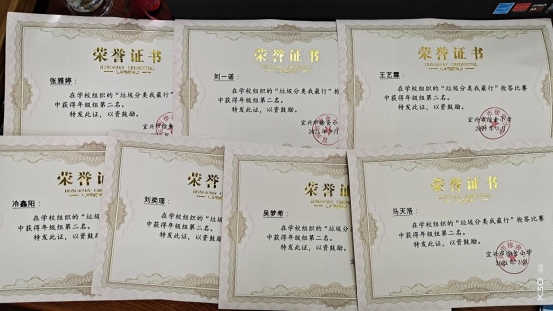 荣誉证书
HONORARY CREDENTIAL
张雅婷：
在学校组织的“垃圾分类我最行”
中获得年级组第二名。
特发此证，以资鼓励。
荣誉证书
刘一诺：
在学校组织的“垃圾分类我最行”抢
中获得年级组第二名。
特发此证，以资鼓励。
荣誉证书
HONORARY CREDENTIAL
王艺霖：
在学校组织的“垃圾分类我最行”抢答比赛
中获得年级组第二名。
特发此证，以资鼓励。
荣誉证书
HONORARY CREDENTIAL
冷鑫阳：
在学校组织的“垃圾
中获得年级组第二名。
特发此证，以资鼓
荣誉
刘奕瑶：
在学校组织的“垃圾
中获得年级组第二名。
特发此证，以资鼓励。
荣誉证
吴梦希：
在学校组织的“垃圾
中获得年级组第二名。
特发此证，以资鼓励。
荣誉证书
HONORARY CREDENTIAL
马天浩：
在学校组织的“垃圾分类我最行”抢答比赛
中获得年级组第二名。
特发此证，以资鼓励。